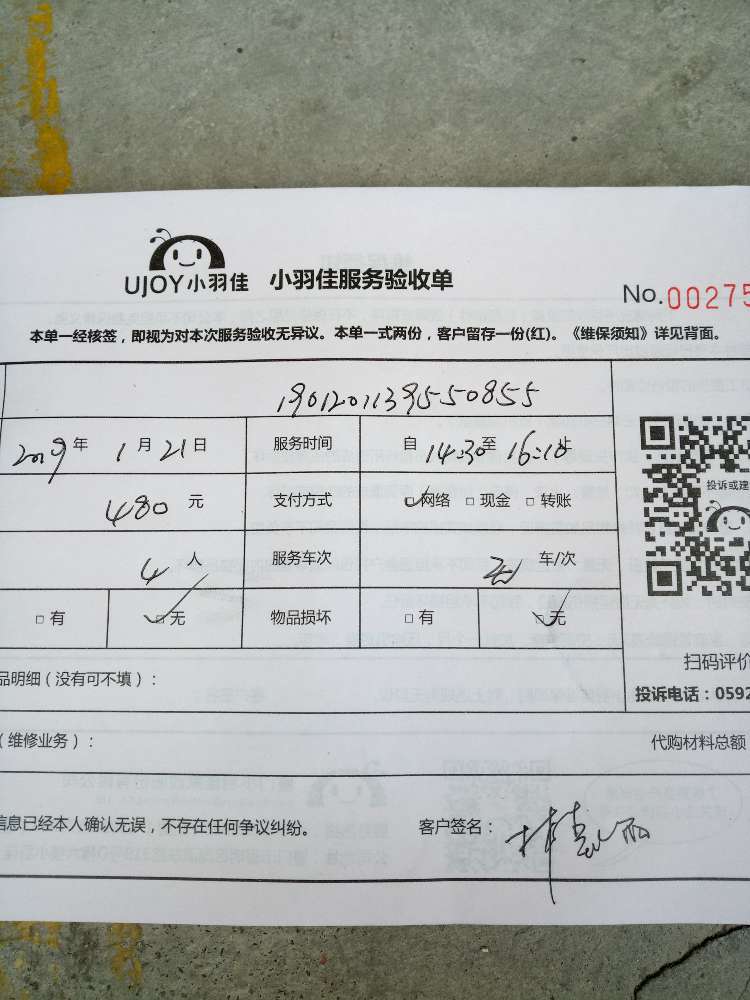 UJOY小羽佳 小羽佳服务验收单
No.00275
本单一经核签，即视为对本次服务验收无异议。本单一式两份，客户留存一份(红)。《维保须知》详见背面。
1901201139550855
2019年1月21日 服务时间 自14:30至16:10止
480元 支付方式 网络 现金 转账
投诉或建
4人 服务车次 车/次
有 无 物品损坏 有 无
扫码评价
品明细（没有可不填）：
投诉电话：0592
（维修业务）： 代购材料总额
信息已经本人确认无误，不存在任何争议纠纷。 客户签名：